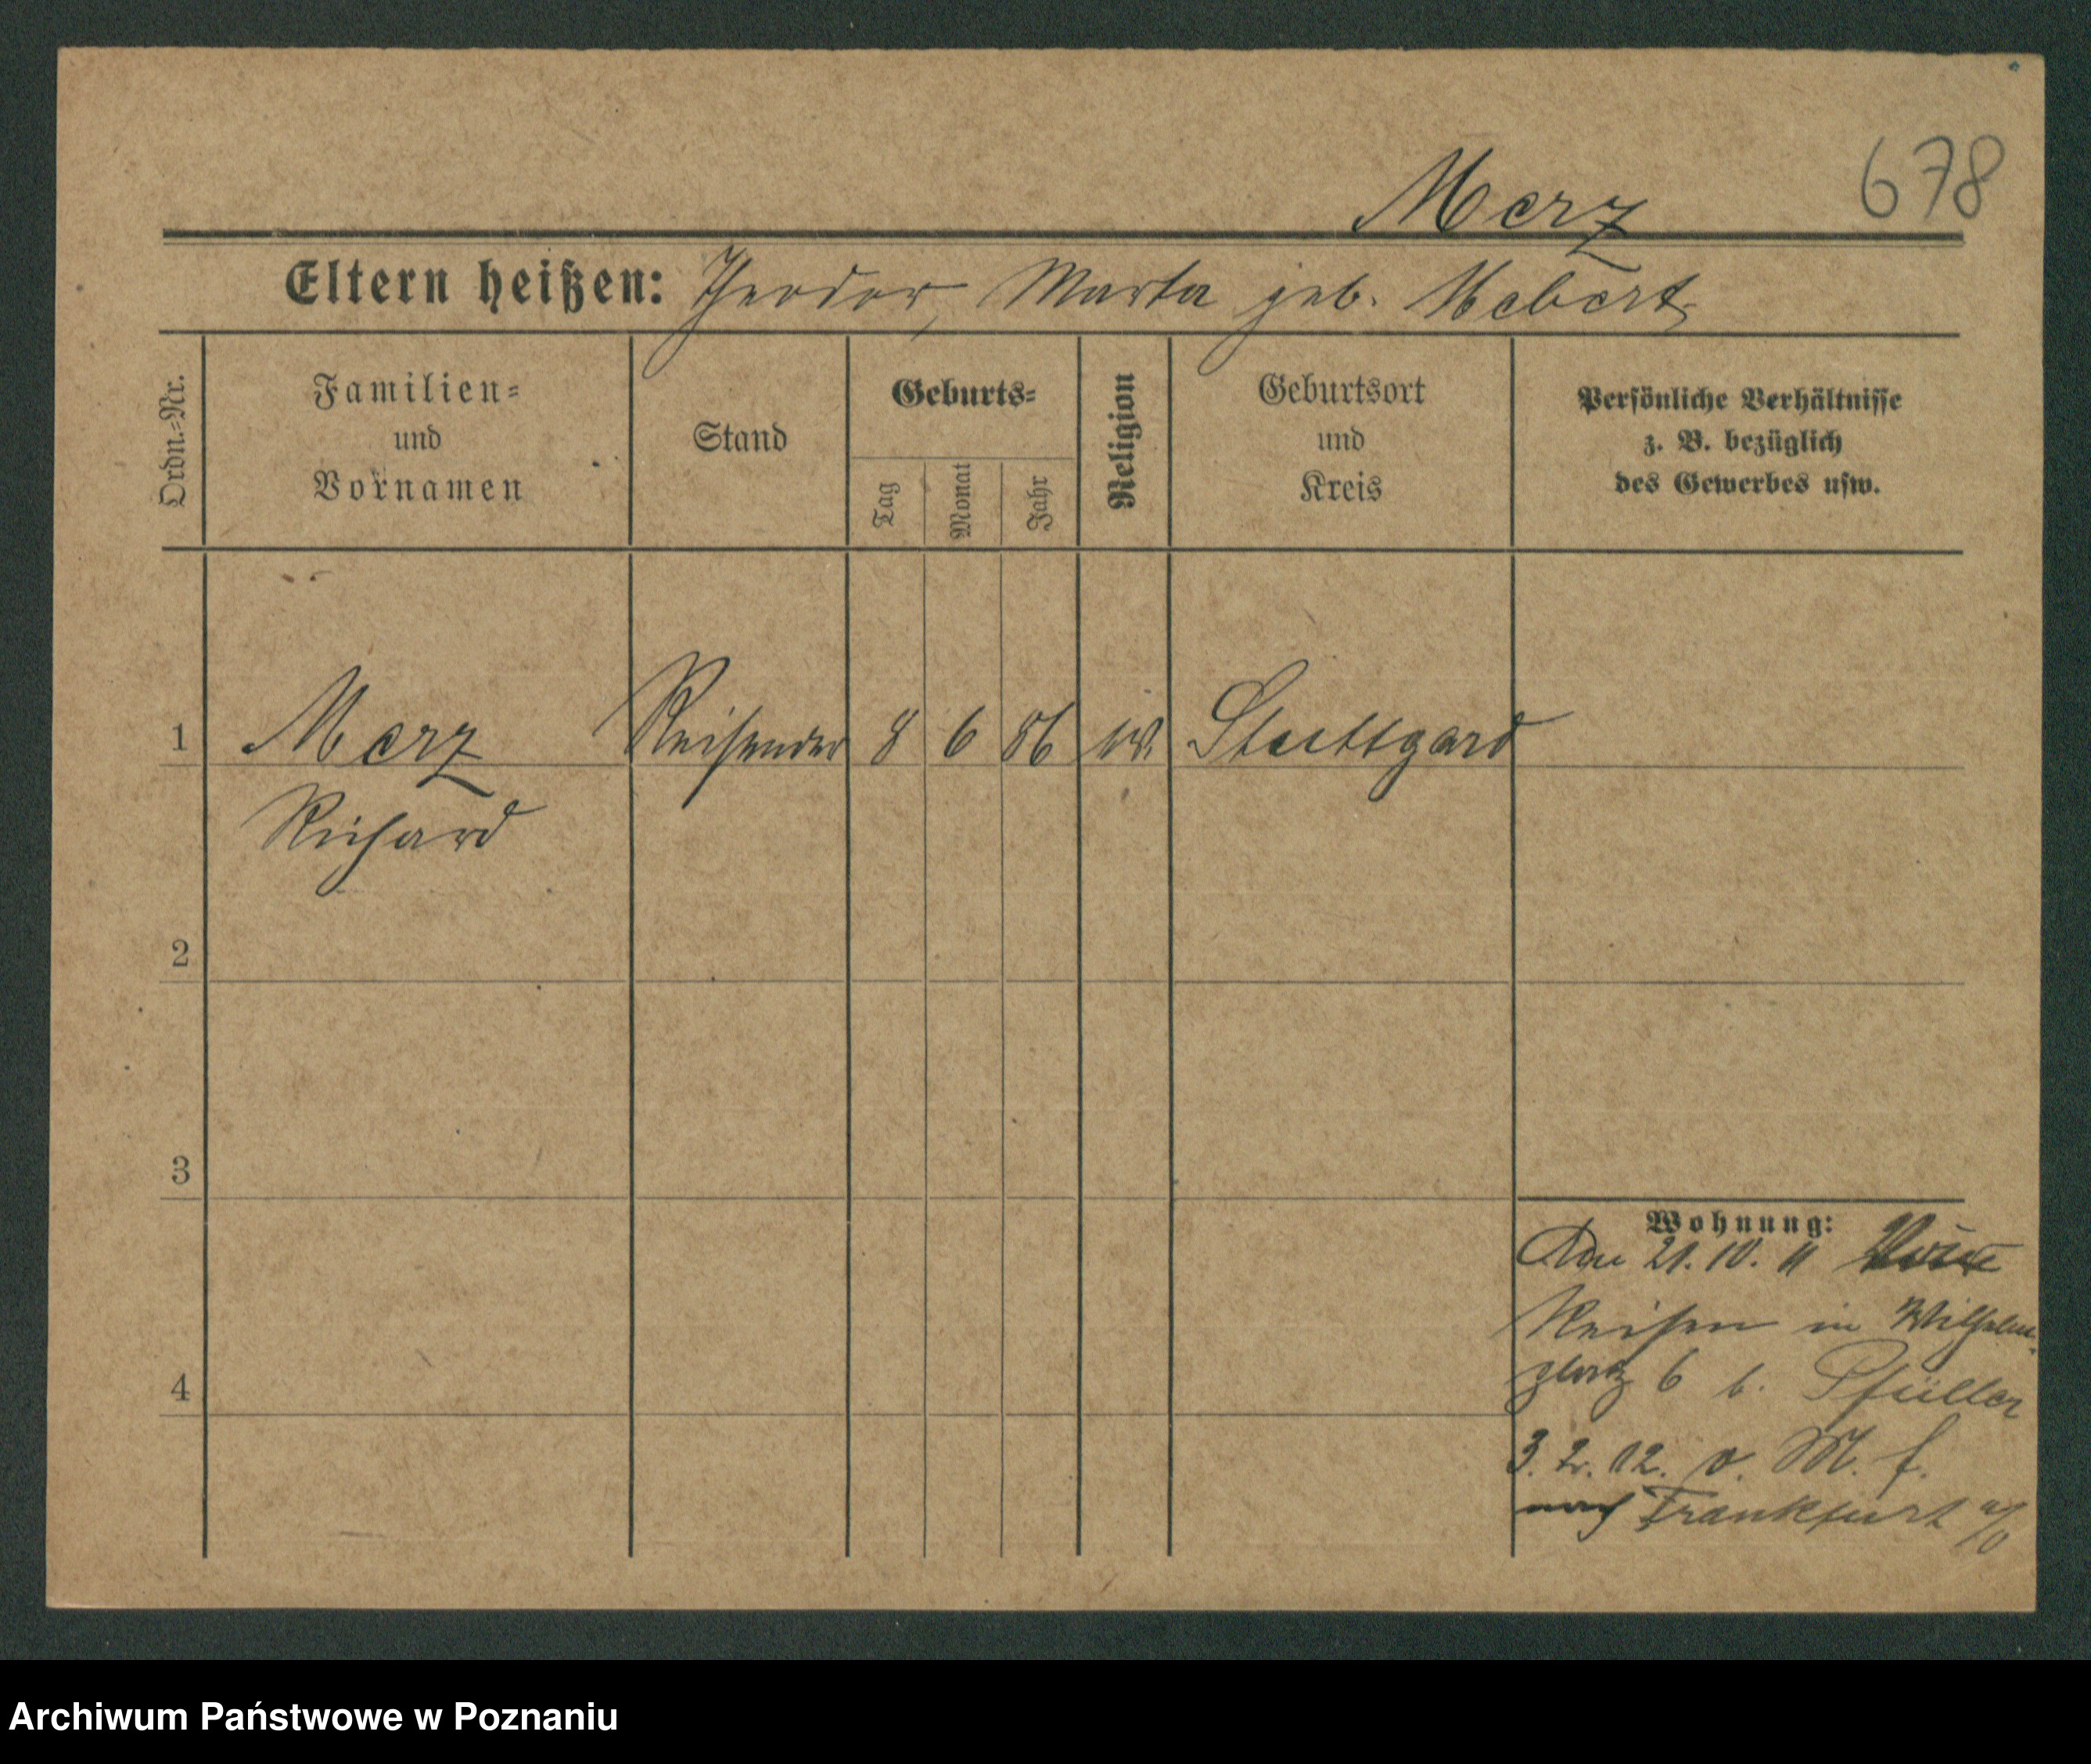 678
Merz
Eltern heißen: Theodor, Marta geb. Hebert
Ordn.-Nr.
Familien-
und
Vornamen
Stand
Geburts-
Tag
Monat
Jahr
Religion
Geburtsort
und
Kreis
Persönliche Verhältnisse
z. B. bezüglich
des Gewerbes usw.
1 Merz Reisender 8 6 86 Stuttgard
Richard
2
3
4
Wohnung:
21. 10. 11
Reisen in Wilhelm
platz 6 b. Pfüller
3. 2. 12. v. M. f.
nach Frankfurt a/O
Archiwum Państwowe w Poznaniu